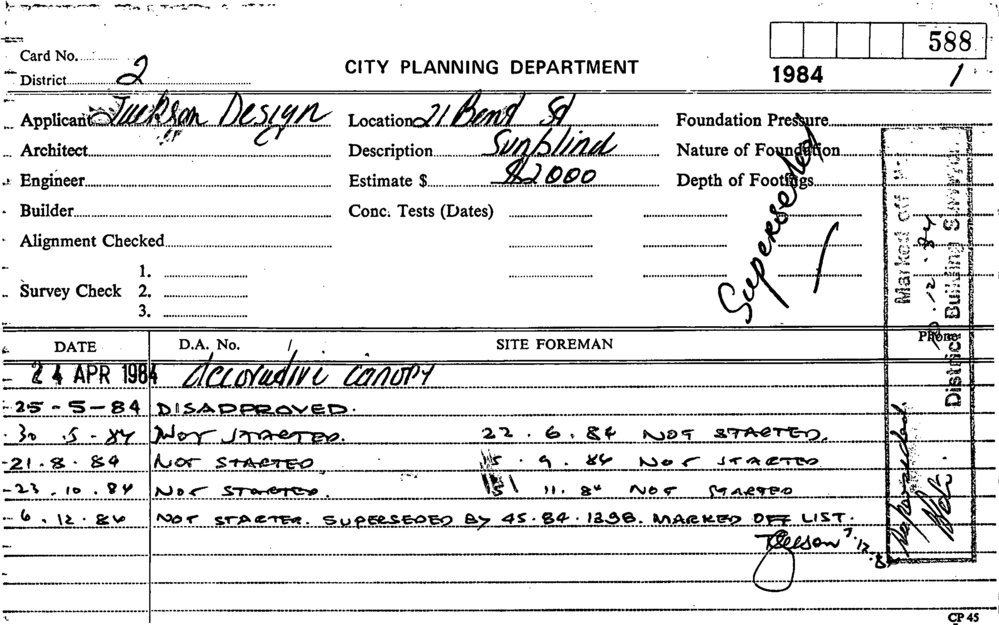 588
Card No.
CITY PLANNING DEPARTMENT
1984 1
District 2
Applicant Jackson Design Location 21 Bent St Foundation Pressure
Architect Description Sunblind Nature of Foundation
Engineer Estimate $ $2000 Depth of Footings
Builder Conc. Tests (Dates)
Superseded
Alignment Checked
1.
Survey Check 2.
3.
Marked off
District Building Surveyor
DATE D.A. No. SITE FOREMAN Phone
24 APR 1984 decorative canopy
25-5-84 DISAPPROVED.
30.5-84 NOT STARTED. 22.6.84 NOT STARTED.
21.8.84 NOT STARTED 9.84 NOT STARTED
23.10.84 NOT STARTED. 11.84 NOT STARTED
6.12.84 NOT STARTED. SUPERSEDED BY 45.84.1398. MARKED OFF LIST.
CP 45